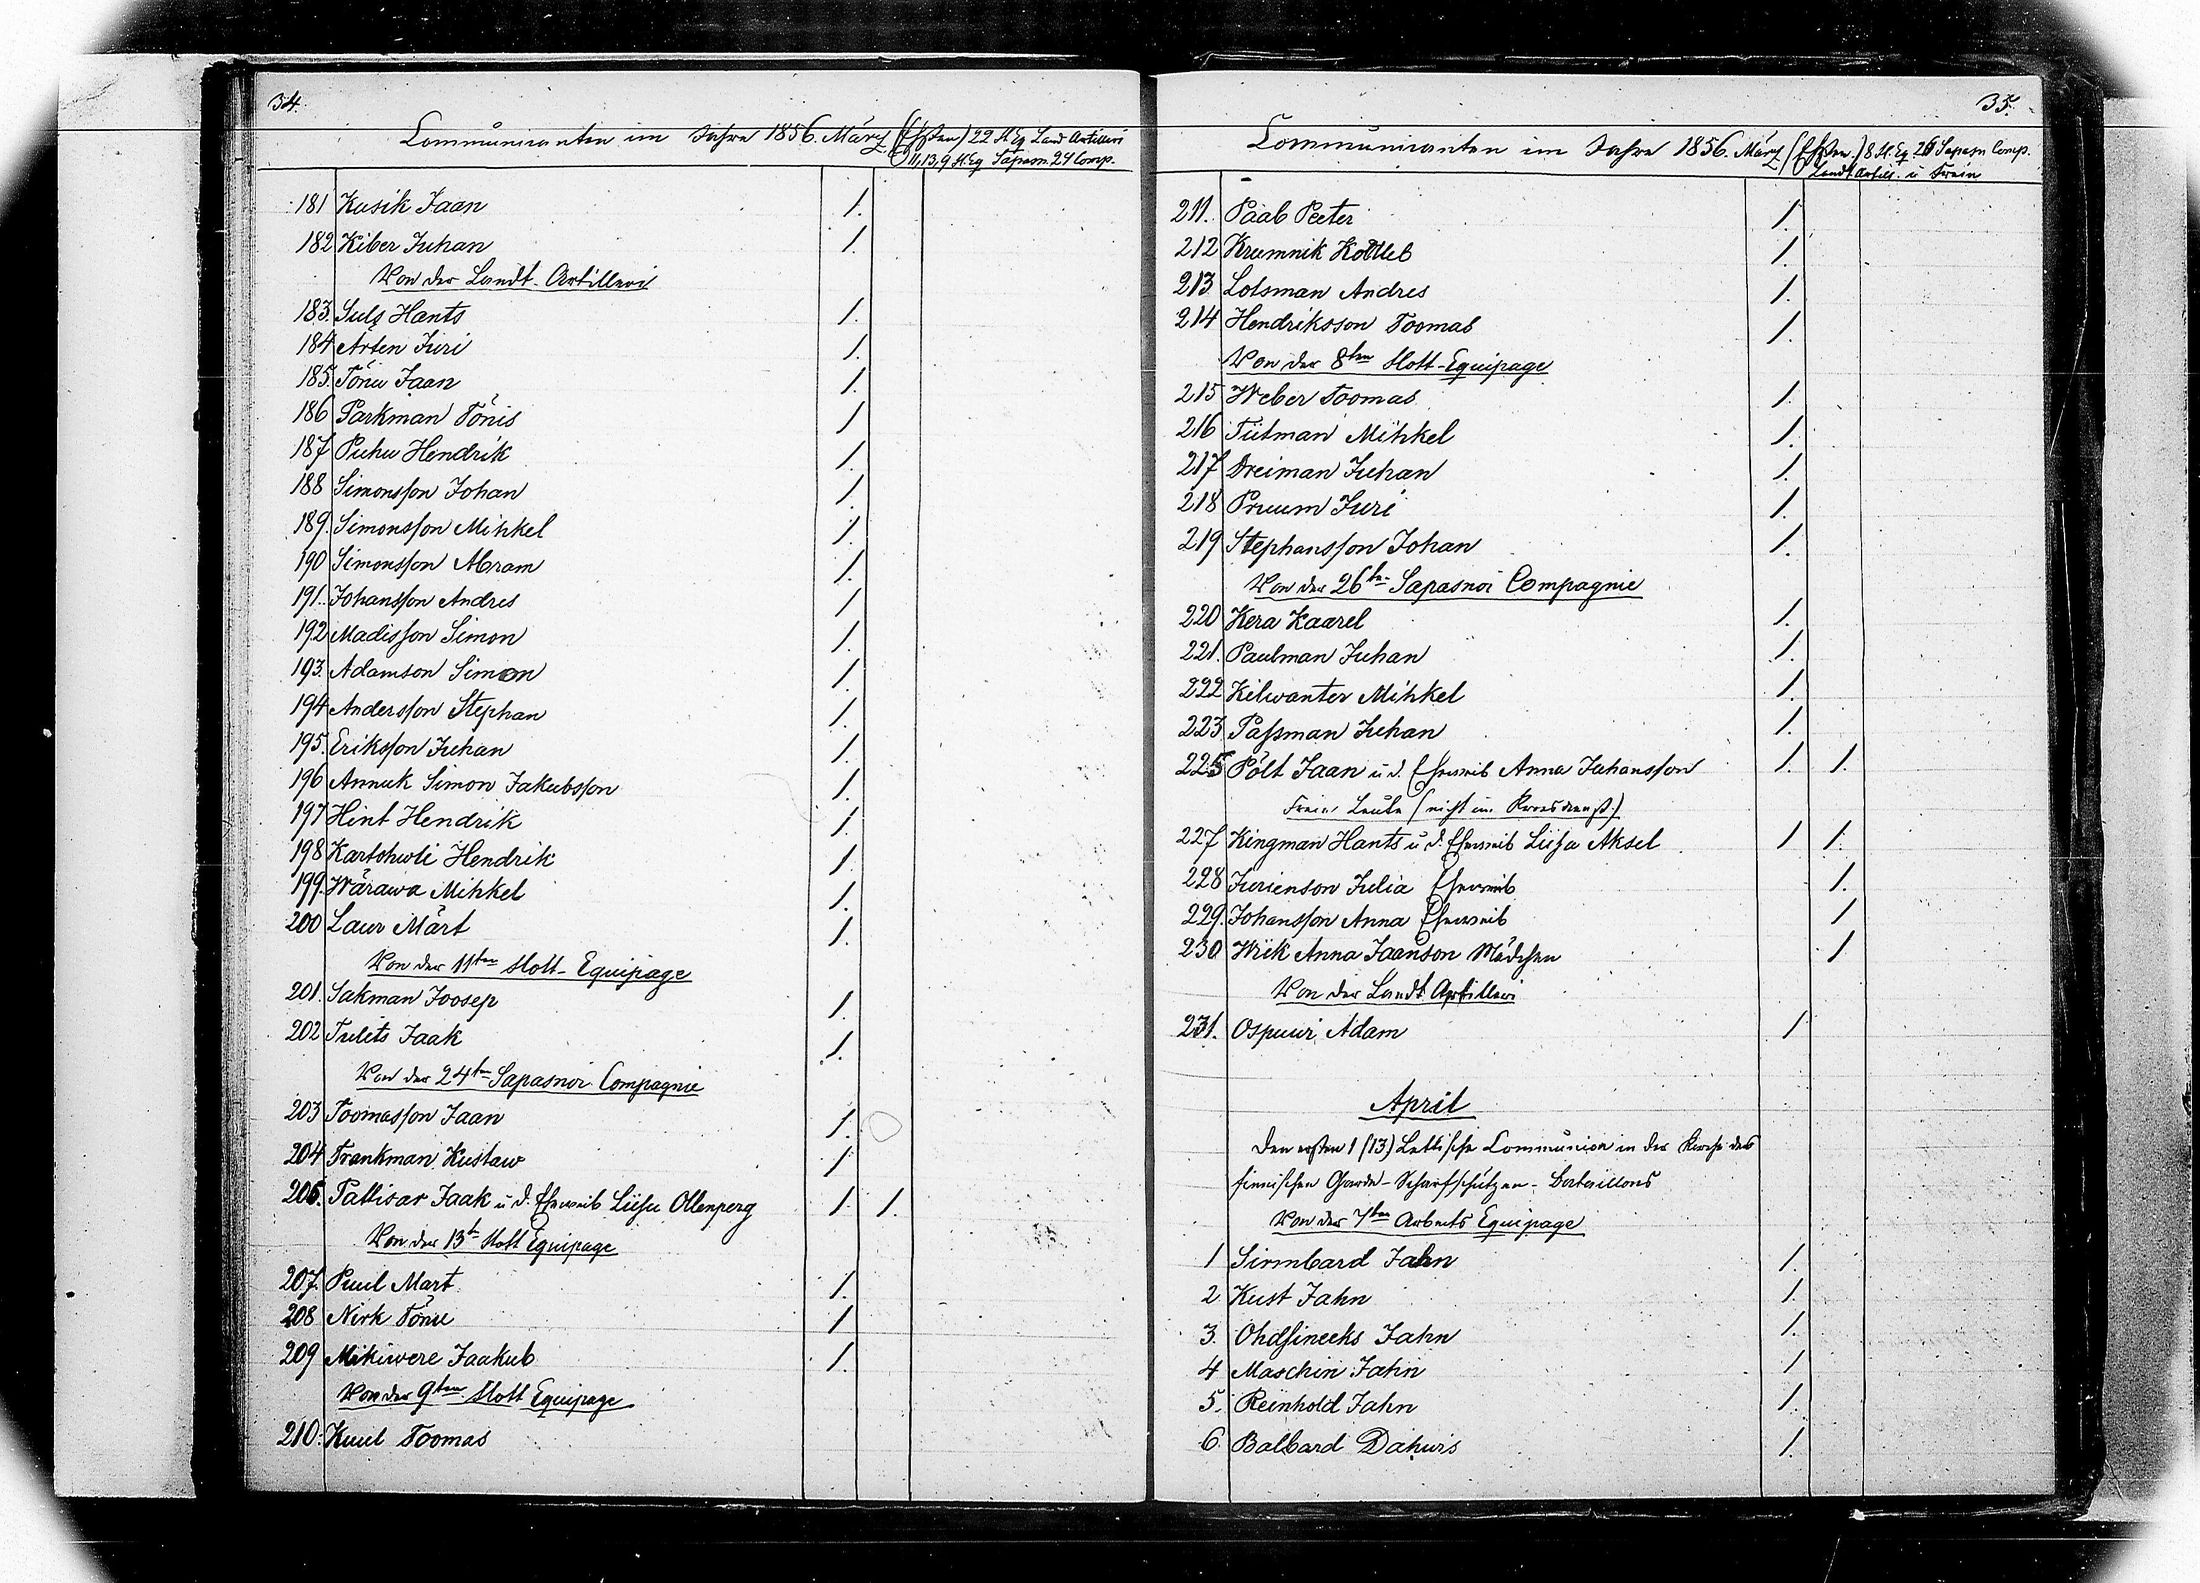 34.
Communicanten im Jahre 1856. März (Ehsten) 22 Fl. Eq. Land Artilleri
11, 13, 9 Fl. Eq. Sapasn. 24 Comp.
181 Kusik Jaan 1.
182 Kiber Juhan 1.
Von der Landt-Artilleri
183. Suls Hants 1.
184 Arten Jüri 1.
185. Tõnu Jaan 1.
186 Parkman Tõnis 1
187 Puhu Hendrik 1.
188 Simonsson Johan 1.
189. Simonsson Mihkel 1.
190 Simonsson Abram 1.
191. Johansson Andres 1
192 Madisson Simon 1.
193. Adamson Simon 1.
194 Andersson Stephan 1.
195. Eriksson Juhan 1.
196 Annuk Simon Jakubsson 1.
197 Hint Hendrik 1.
198 Kartohwli Hendrik 1.
199. Wärawa Mihkel 1.
200 Laur Märt 1.
Von der 11ten Flott-Equipage
201. Sakman Joosep 1.
202 Tulits Jaak 1.
Von der 24ten Sapasnoi Compagnie
203 Toomasson Jaan 1.
204 Trankman Kustaw 1
206. Pallisar Jaak u. d. Eheweib Liisu Ollenperg 1. 1.
Von der 13t Flott Equipage
207. Puul Mart 1.
208 Nirk Tõnu 1
209 Mikiwere Jaakub 1.
Von der 9ten Flott Equipage
210. Kuul Toomas
35.
Communicanten im Jahre 1856. März (Ehsten.) 8 Fl. Eq. 26 Sapasn Comp.
Landt Artill. u Frein
211. Paab Peeter 1.
212 Krumnik Kottleb 1.
213 Lotsman Andres 1.
214 Hendriksson Toomas 1.
Von der 8ten Flott-Equipage
215 Weber Toomas 1.
216 Tiitman Mihkel 1.
217 Dreiman Juhan 1.
218 Pruum Juri 1.
219 Stephansson Johan 1.
Von der 26ten Sapasnoi Compagnie
220 Kera Kaarel 1.
221. Paulman Juhan 1.
222 Kilwanter Mihkel 1.
223. Passman Juhan 1.
225 Põlt Jaan u. d. Eheweib Anna Juhansson 1. 1.
Freie Leute (nicht im Kronsdienst.)
227 Kingman Hants u. d. Eheweib Liisa Aksel 1 1.
228 Jurienson Julia Eheweib 1.
229. Johansson Anna Eheweib 1
230 Wiik Anna Jaanson Mädchen 1
Von der Landt Artilleri
231. Ospuur Adam 1
April
Den ersten 1 (13) Lettische Communion in der Kirche des
finnischen Garde-Scharfschützen-Bataillons
Von der 7ten Arbeits Equipage
1 Sirmbard Jahn 1.
2 Kust Jahn 1.
3. Ohdsineeks Jahn 1.
4 Maschin Jahn 1
5. Reinhold Jahn 1.
6. Balbard Dahwis 1.